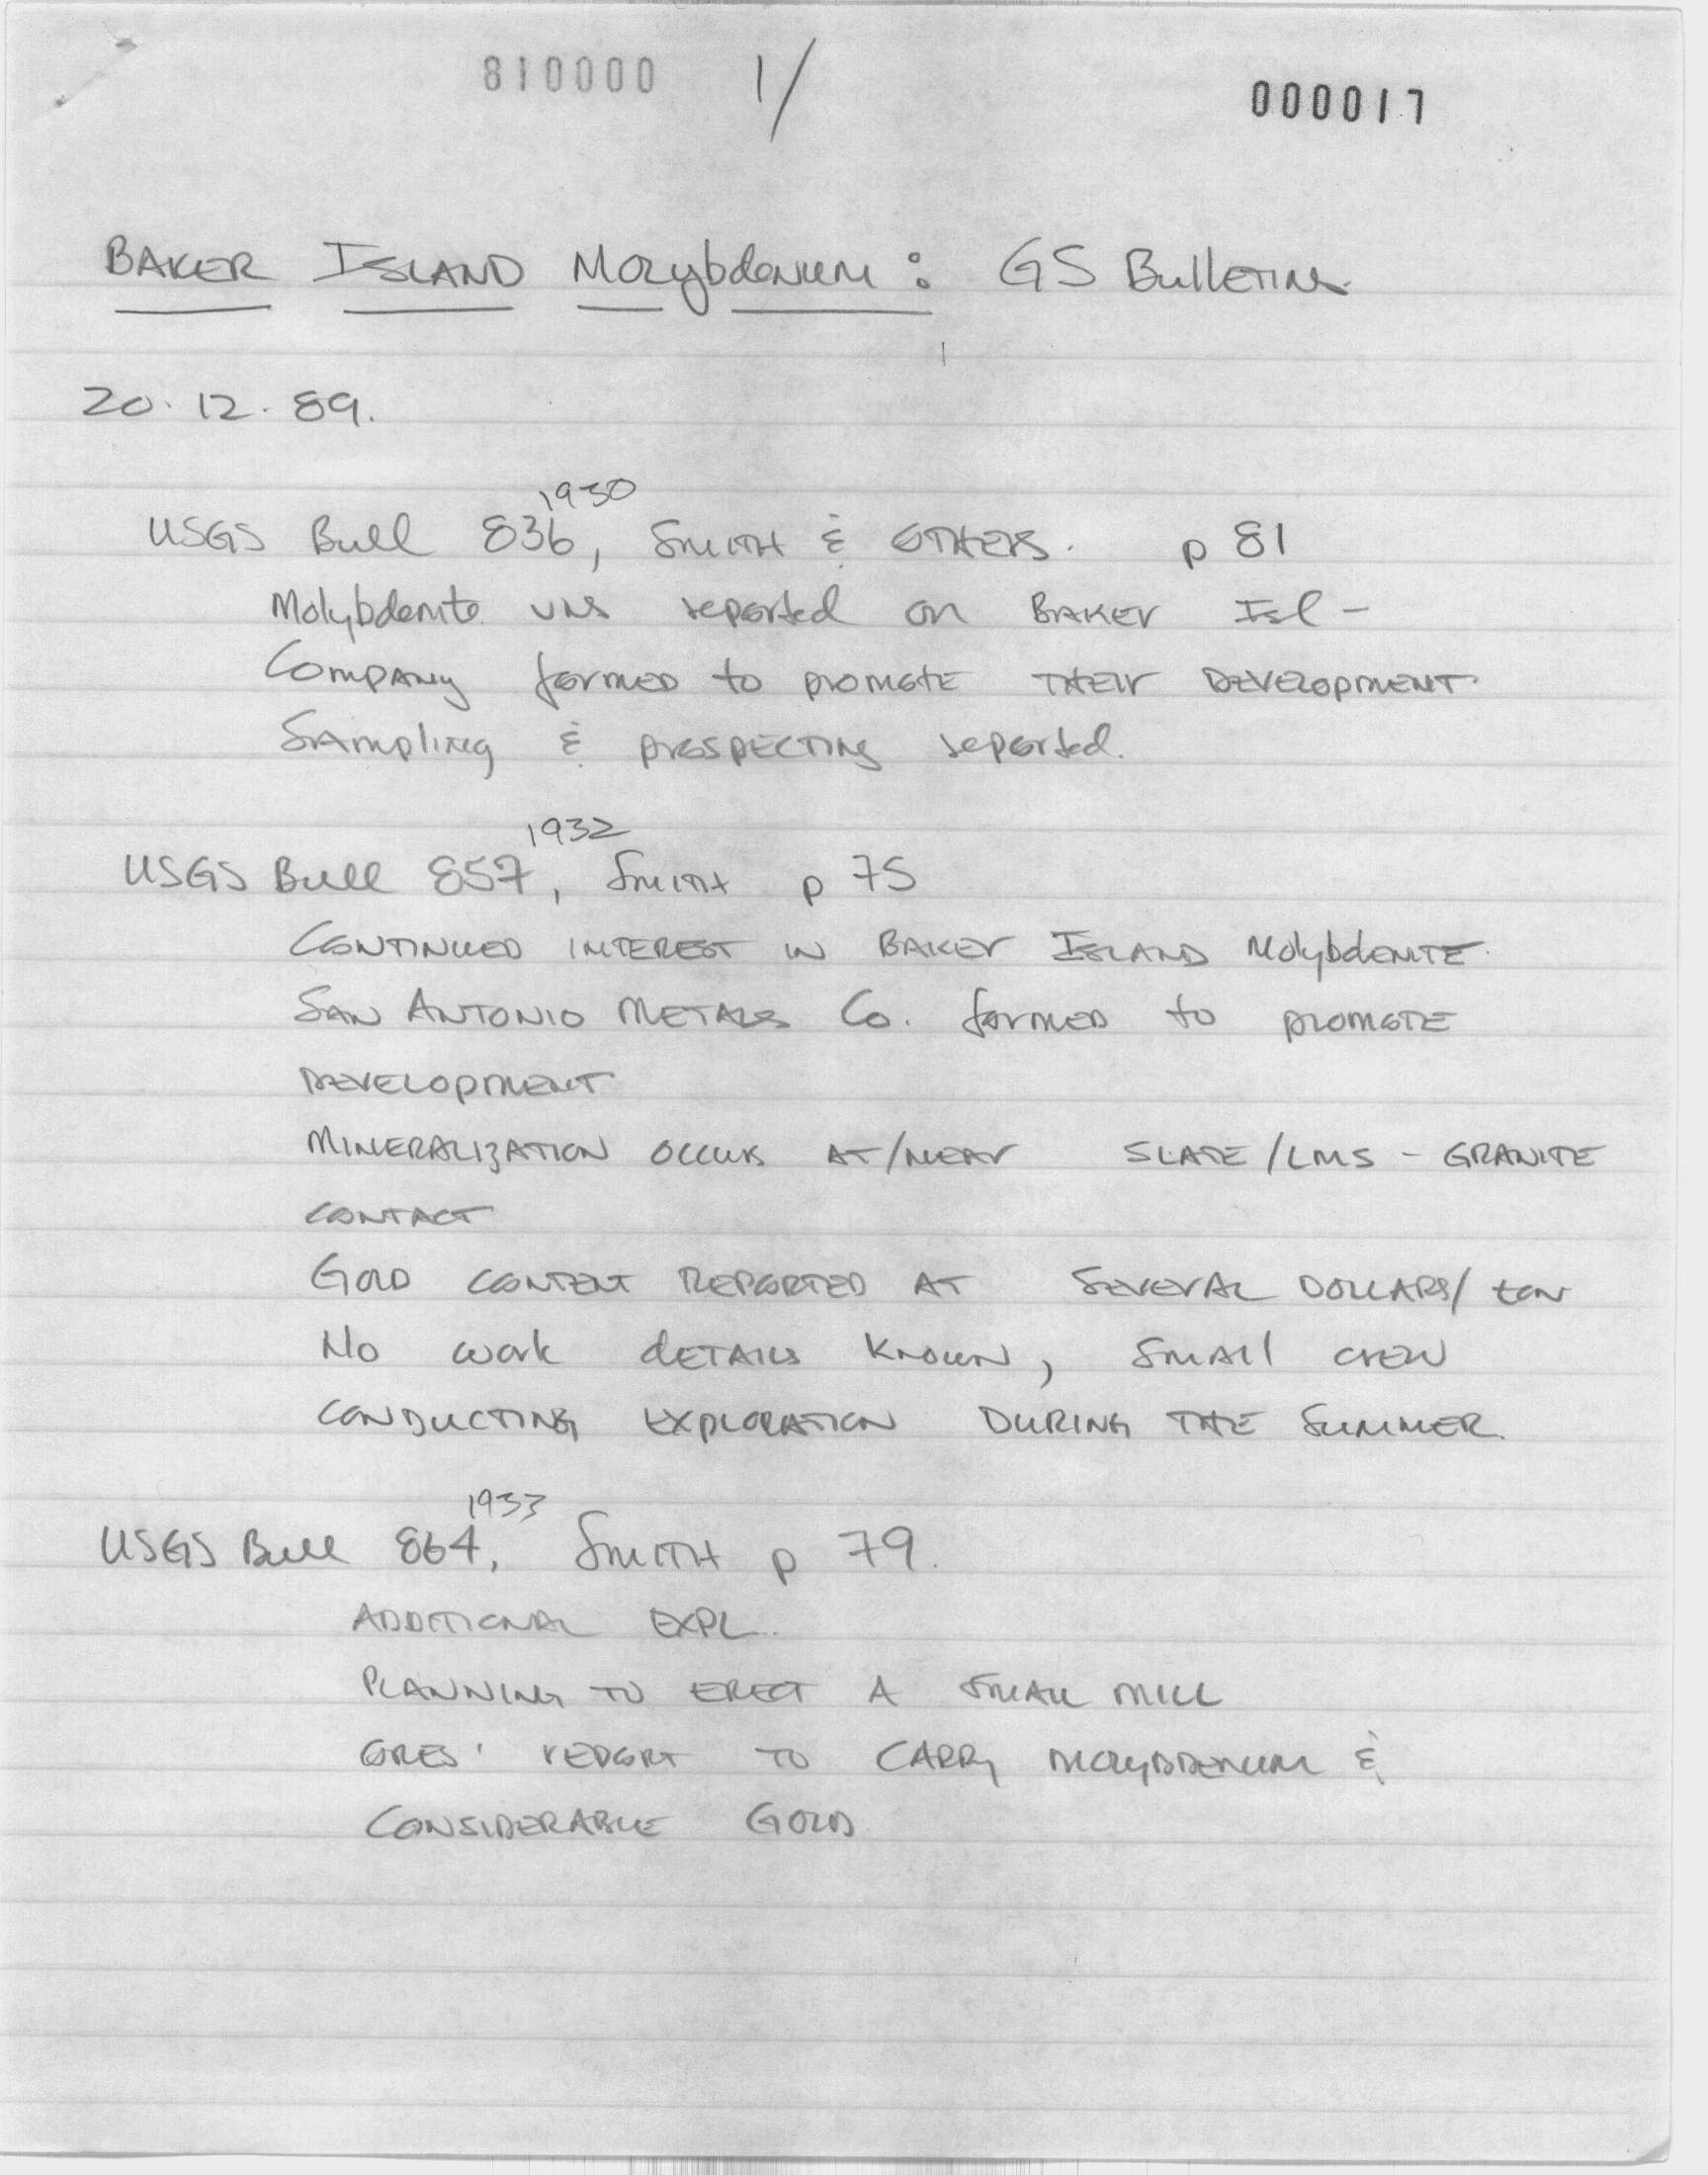 810000 1/ 000017
BAKER ISLAND Molybdenum : GS Bulletins
20.12.89.
1930
USGS Bull 836, Smith & OTHERS. p 81
Molybdenite vns reported on BAKER Isl -
Company formed to promote THEIR DEVELOPMENT.
Sampling & prospecting reported.
1932
USGS Bull 857, Smith p 75
CONTINUED INTEREST IN BAKER ISLAND MolybdENITE.
SAN ANTONIO METALS Co. formed to promote
DEVELOPMENT
MINERALIZATION OCCURS AT/NEAR SLATE/LMS - GRANITE
CONTACT
GOLD CONTENT REPORTED AT SEVERAL DOLLARS/ton
No work dETAILS KNOWN, SMAll CREW
CONDUCTING EXPLORATION DURING THE SUMMER.
1933
USGS Bull 864, SMITH p 79.
ADDITIONAL EXPL..
PLANNING TO ERECT A SMALL MILL
ORES' REPORT TO CARRY MOLYBDENUM &
CONSIDERABLE GOLD